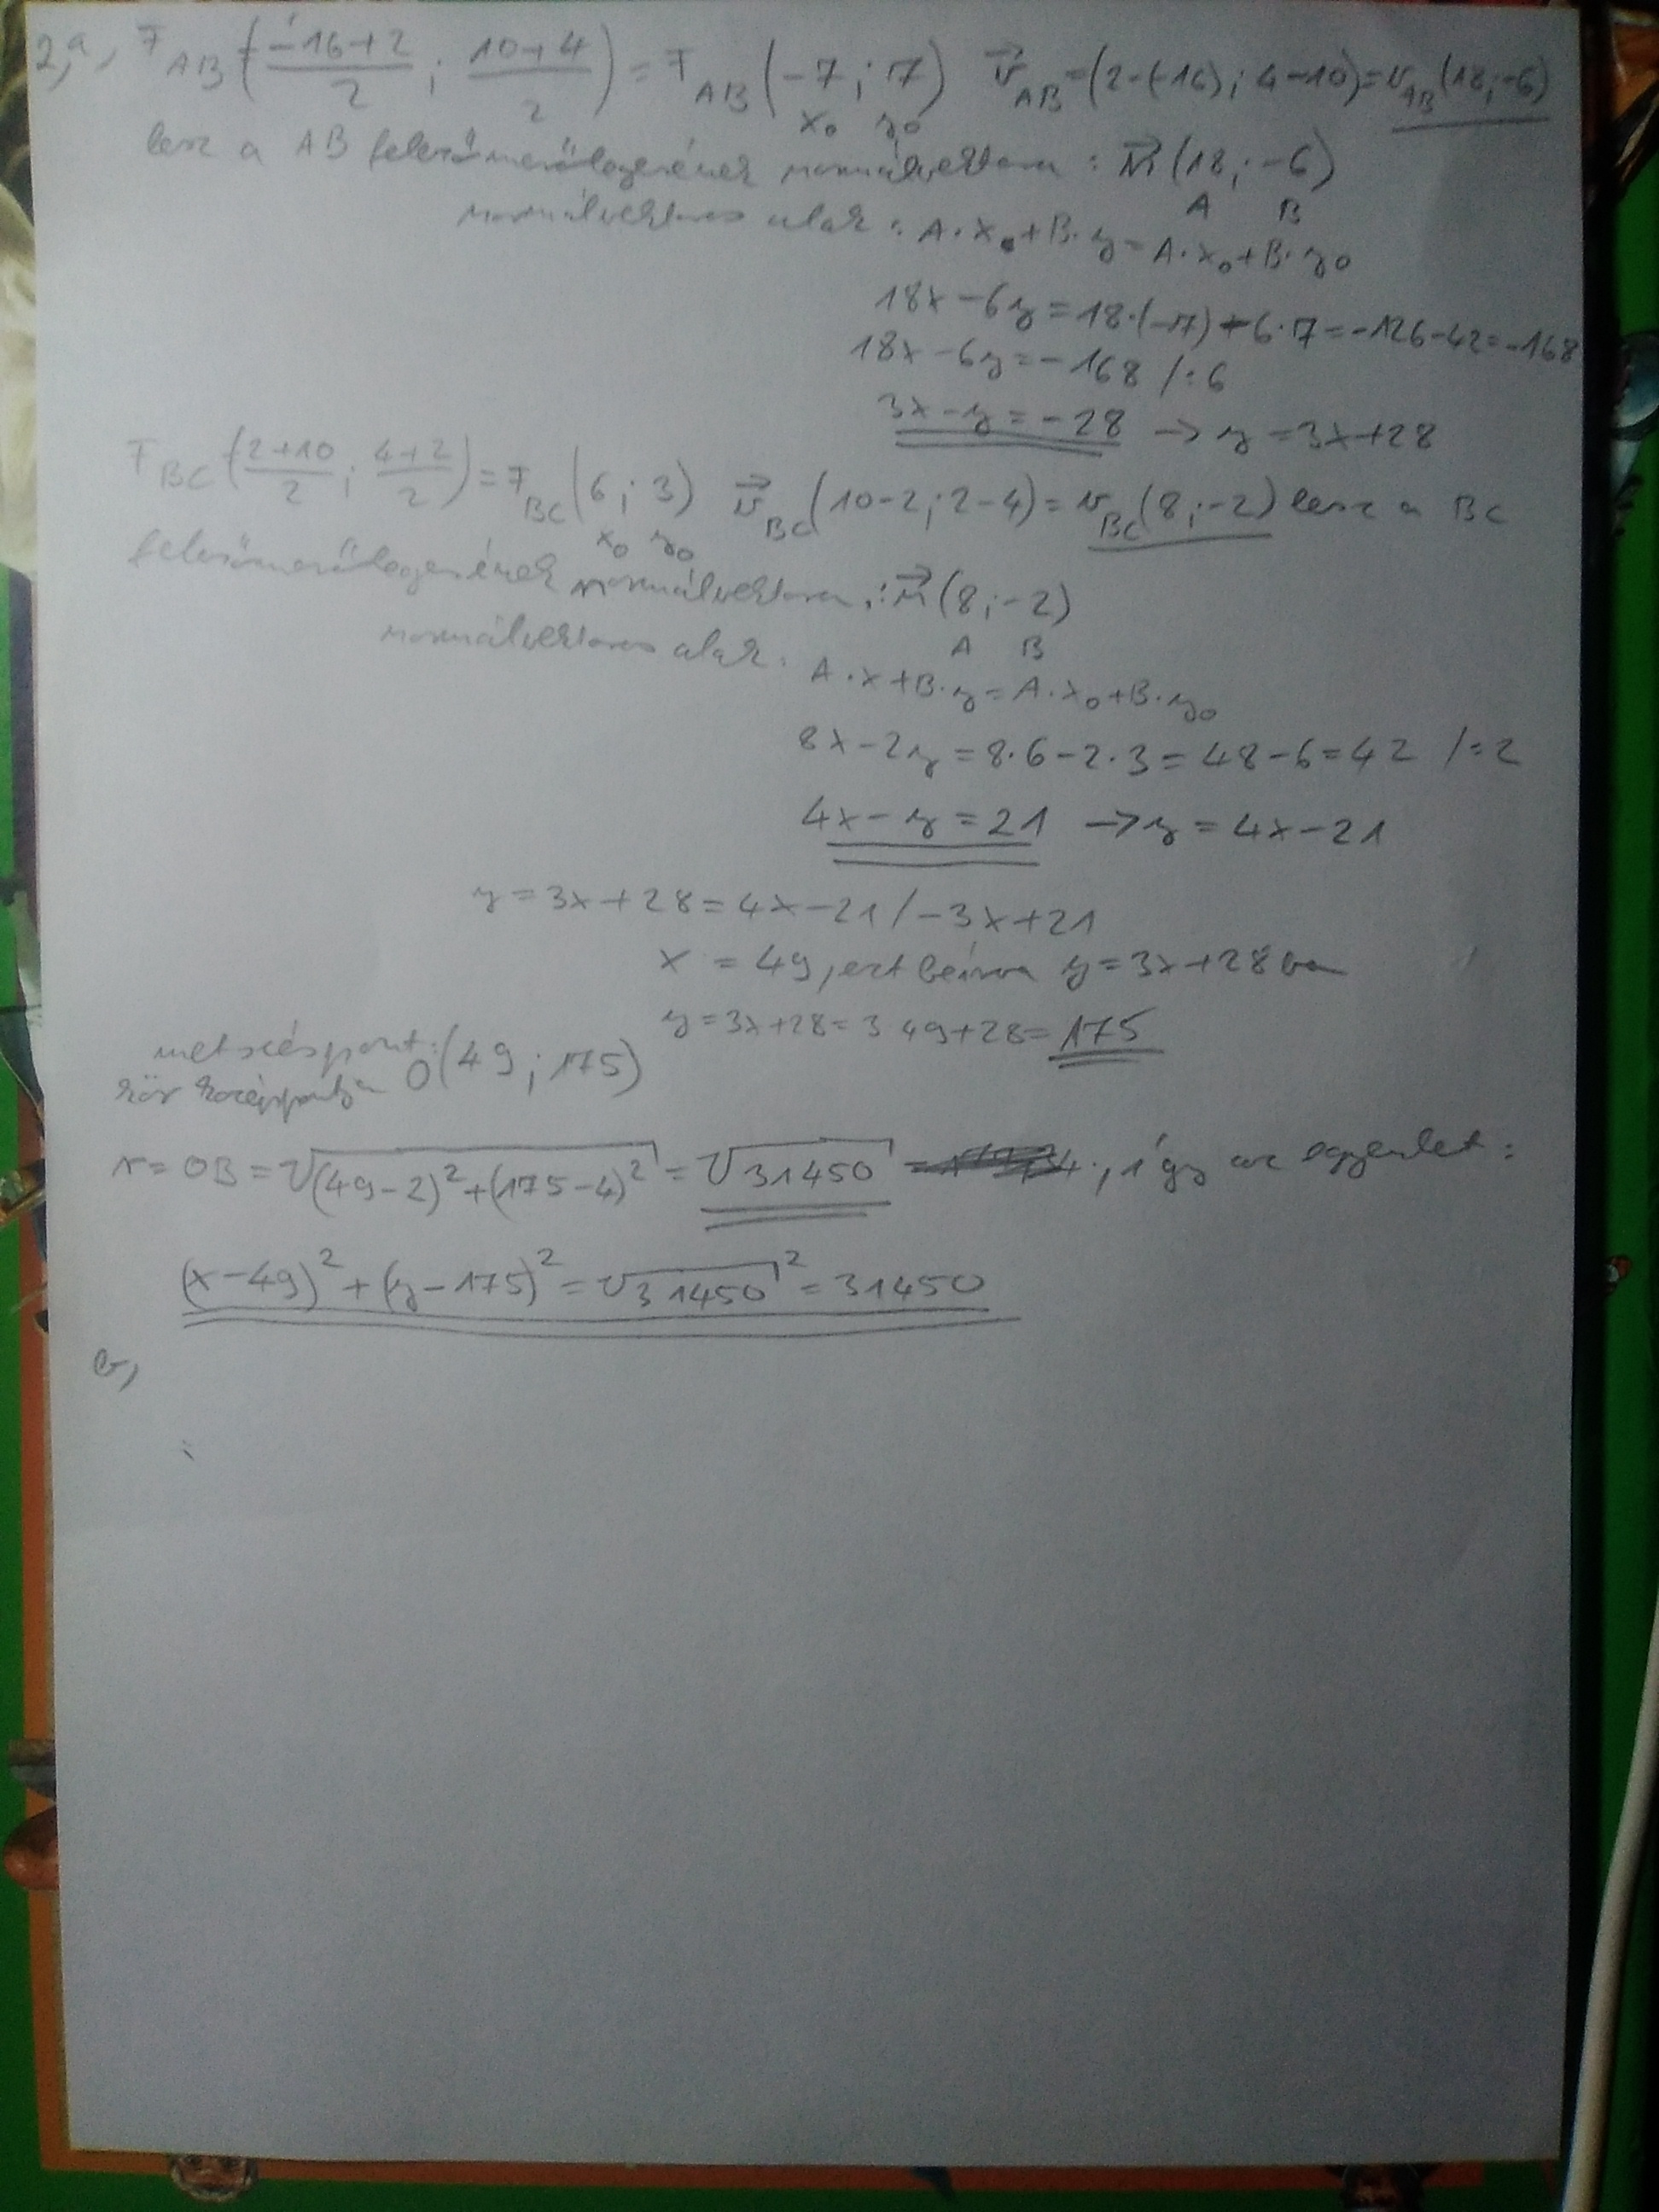 2, a, F_AB (-16+2/2 ; 10+4/2) = F_AB (-7 ; 7) v_AB = (2-(-16) ; 4-10) = v_AB (18 ; -6)
x₀ y₀
lesz a AB felezőmerőlegesének normálvektora : n (18 ; -6)
A B
normálvektoros alak : A·x₀+B·y=A·x₀+B·y₀
18x-6y=18·(-7)-6·7=-126-42=-168
18x-6y=-168 /:6
3x-y=-28 → y=3x+28
F_BC (2+10/2 ; 4+2/2) = F_BC (6 ; 3) v_BC (10-2 ; 2-4) = v_BC (8 ; -2) lesz a BC
x₀ y₀
felezőmerőlegesének normálvektora : n (8 ; -2)
A B
normálvektoros alak :
A·x+B·y=A·x₀+B·y₀
8x-2y=8·6-2·3=48-6=42 /:2
4x-y=21 → y=4x-21
y=3x+28=4x-21 /-3x+21
x = 49, ezt beírva y=3x+28 ba
y=3x+28=3 49+28=175
metszéspont: O(49 ; 175)
kör középpontja
r=OB=√(49-2)²+(175-4)² = √31450, így az egyenlet :
(x-49)²+(y-175)²=√31450²=31450
b,